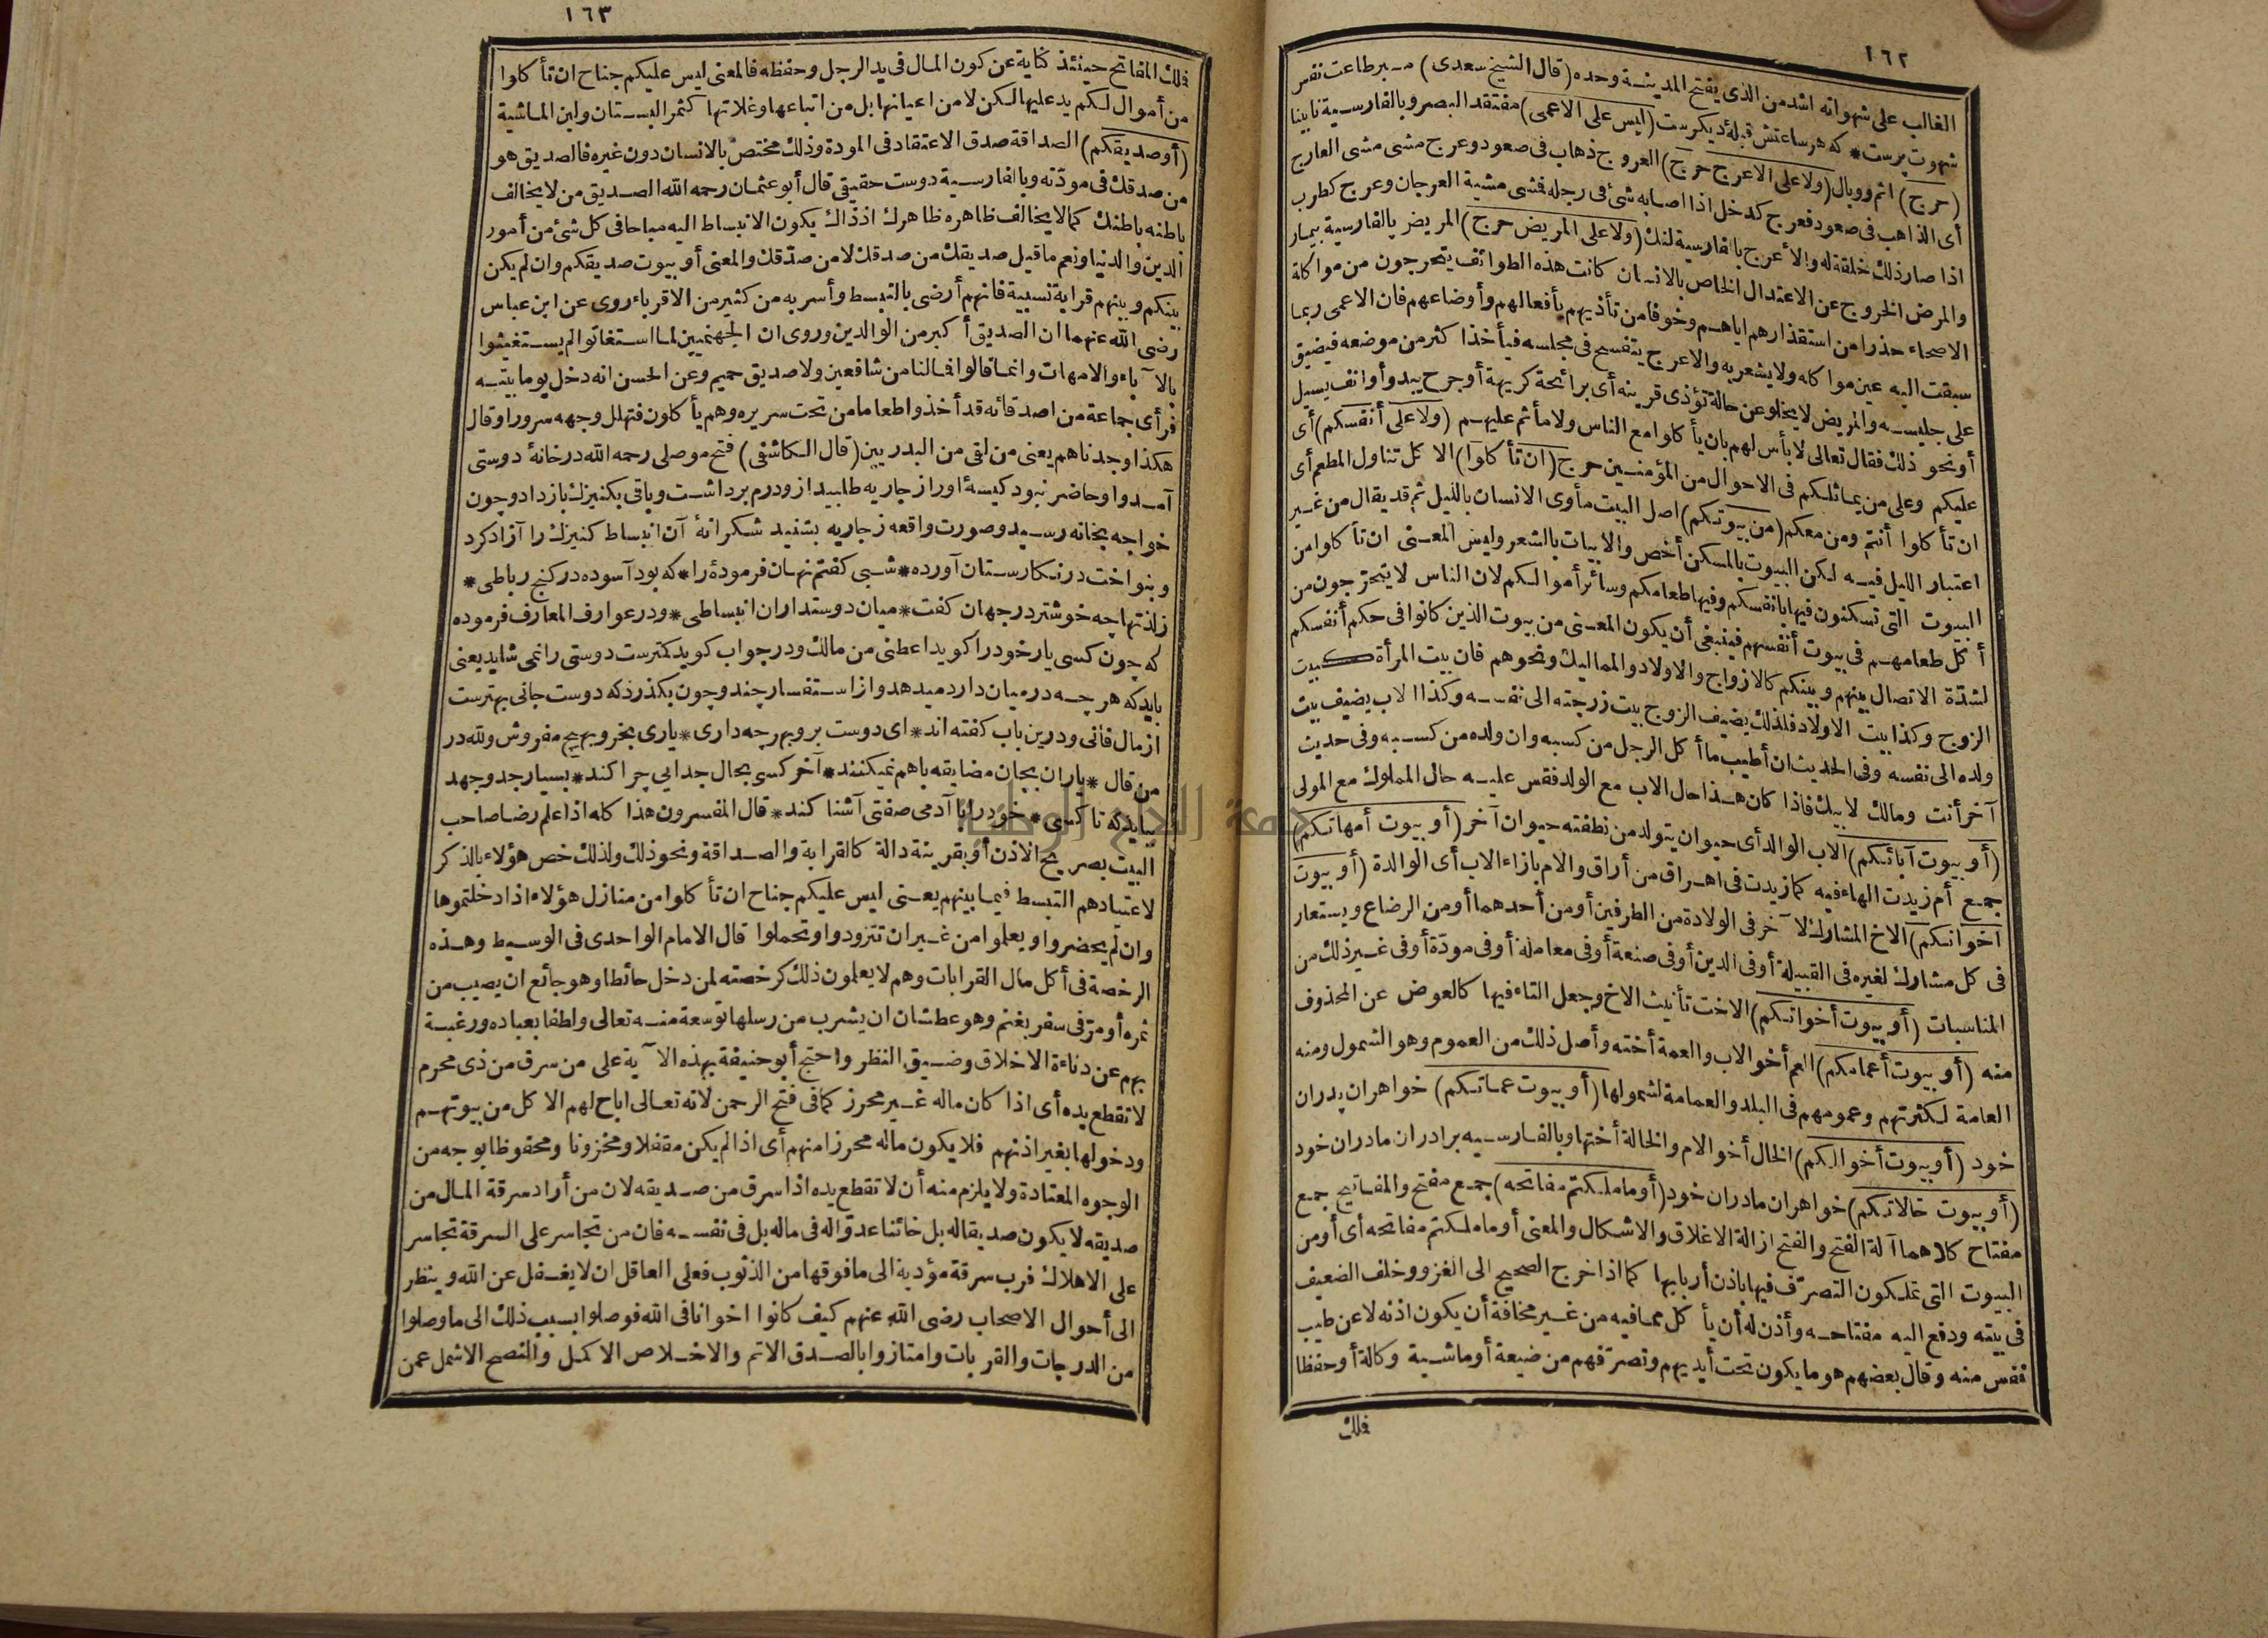 ١٦٢
الغالب على شهواته اشد من الذى يفتح المدينة وحده (قال الشيخ سعدى) مبر طاعت نفس
شهوت پرست * كه هر ساعتش قبلهٔ ديكرست (ليس على الاعمى) مفتقد البصر وبالفارسية نابينا
(حرج) اثم ووبال (ولا على الاعرج حرج) العروج ذهاب فى صعود وعرج مشى مشى العارج
أى الذاهب فى صعود فعرج كدخل اذا اصابه شئ فى رجله فمشى مشية العرجان وعرج كطرب
اذا صار ذلك خلقة له والاعرج بالفارسية لنك (ولا على المريض حرج) المريض بالفارسية بيمار
والمرض الخروج عن الاعتدال الخاص بالانسان كانت هذه الطوائف يتحرجون من مواكلة
الاصحاء حذرا من استقذارهم اياهم وخوفا من تأذيهم بأفعالهم وأوضاعهم فان الاعمى ربما
سبقت اليه عين مواكله ولا يشعر به والاعرج يتفسح فى مجلسه فيأخذ اكثر من موضعه فيضيق
على جليسه والمريض لا يخلو عن حالة تؤذى قرينه أى برائحة كريهة أو جرح يبدو أو انف يسيل
أو نحو ذلك فقال تعالى لا بأس لهم بان يأكلوا مع الناس ولا مأثم عليهم (ولا على أنفسكم) أى
عليكم وعلى من يماثلكم فى الاحوال من المؤمنين حرج (ان تأكلوا) الاكل تناول المطعم أى
ان تأكلوا أنتم ومن معكم (من بيوتكم) اصل البيت مأوى الانسان بالليل ثم قد يقال من غير
اعتبار الليل فيه لكن البيوت بالمسكن أخص والابيات بالشعر وليس المعنى ان تأكلوا من
البيوت التى تسكنون فيها بانفسكم وفيها طعامكم وسائر أموالكم لان الناس لا يتحرجون من
أكل طعامهم فى بيوت أنفسهم فينبغى أن يكون المعنى من بيوت الذين كانوا فى حكم أنفسكم
لشدة الاتصال بينهم وبينكم كالازواج والاولاد والمماليك ونحوهم فان بيت المرأة كبيت
الزوج وكذا بيت الاولاد فلذلك يضيف الزوج بيت زوجته الى نفسه وكذا الاب يضيف بيت
ولده الى نفسه وفى الحديث ان أطيب ما أكل الرجل من كسبه وان ولده من كسبه وفى حديث
آخر أنت ومالك لابيك فاذا كان هذا حال الاب مع الولد فقس عليه حال المملوك مع المولى
(أو بيوت آبائكم) الاب الوالد أى حيوان يتولد من نطفته حيوان آخر (أو بيوت أمهاتكم)
جمع أم زيدت الهاء فيه كما زيدت فى اهراق من أراق والام بازاء الاب أى الوالدة (أو بيوت
اخوانكم) الاخ المشارك لآخر فى الولادة من الطرفين أو من أحدهما أو من الرضاع ويستعار
فى كل مشارك لغيره فى القبيلة أو فى الدين أو فى صنعة أو فى معاملة أو فى مودة أو فى غير ذلك من
المناسبات (أو بيوت أخواتكم) الاخت تأنيث الاخ وجعل التاء فيها كالعوض عن المحذوف
منه (أو بيوت أعمامكم) العم أخو الاب والعمة أخته وأصل ذلك من العموم وهو الشمول ومنه
العامة لكثرتهم وعمومهم فى البلد والعمامة لشمولها (أو بيوت عماتكم) خواهران پدران
خود (أو بيوت أخوالكم) الخال أخو الام والخالة أختها وبالفارسيه برادران مادران خود
(أو بيوت خالاتكم) خواهران مادران خود (أو ما ملكتم مفاتحه) جمع مفتح والمفاتيح جمع
مفتاح كلاهما آلة الفتح والفتح ازالة الاغلاق والاشكال والمعنى أو ما ملكتم مفاتحه أى أو من
البيوت التى تملكون التصرف فيها باذن أربابها كما اذا خرج الصحيح الى الغزو وخلف الضعيف
فى بيته ودفع اليه مفتاحه وأذن له أن يأكل مما فيه من غير مخافة أن يكون اذنه لا عن طيب
نفس منه وقال بعضهم هو ما يكون تحت أيديهم وتصرفهم من ضيعة أو ماشية وكالة أو حفظا
فلك
١٦٣
فلك المفاتح حينئذ كناية عن كون المال فى يد الرجل وحفظه فالمعنى ليس عليكم جناح ان تأكلوا
من أموال لكم يد عليها لكن لا من اعيانها بل من اتباعها وغلاتها كثمر البستان ولبن الماشية
(أو صديقكم) الصداقة صدق الاعتقاد فى المودة وذلك مختص بالانسان دون غيره فالصديق هو
من صدقك فى مودته وبالفارسية دوست حقيقى قال أبو عثمان رحمه الله الصديق من لا يخالف
باطنه باطنك كما لا يخالف ظاهره ظاهرك اذ ذاك يكون الانبساط اليه مباحا فى كل شئ من أمور
الدين والدنيا ونعم ما قيل صديقك من صدقك لا من صدّقك والمعنى أو بيوت صديقكم وان لم يكن
بينكم وبينهم قرابة نسبية فانهم أرضى بالتبسط وأسر به من كثير من الاقرباء روى عن ابن عباس
رضى الله عنهما ان الصديق أكبر من الوالدين وروى ان الجهنميين لما استغاثوا لم يستغيثوا
بالآباء والامهات وانما قالوا فما لنا من شافعين ولا صديق حميم وعن الحسن انه دخل يوما بيته
فرأى جماعة من اصدقائه قد أخذوا طعاما من تحت سريره وهم يأكلون فتهلل وجهه سرورا وقال
هكذا وجدناهم يعنى من لقى من البدريين (قال الكاشفى) فتح موصلى رحمه الله در خانهٔ دوستى
آمد واو حاضر نبود كيسهٔ او را از جاريه طلبيد از ودرم برداشت وباقى بكنيزك باز داد وچون
خواجه بخانه رسيد وصورت واقعه ز جاريه بشنيد شكرانهٔ آن انبساط كنيزك را آزاد كرد
وبنواخت در نكارستان آورده * شبى كفتم نهان فرمودهٔ را * كه بود آسوده در كنج رباطى *
ز لذتها چه خوشتر در جهان كفت * ميان دوستداران انبساطى * ودر عوارف المعارف فرموده
كه چون كسى يار خود را كويد اعطنى من مالك ودر جواب كويد كمترست دوستى را نمى شايد يعنى
بايد كه هر چه در ميان دارد ميدهد واز استفسار چند وچون بكذرد كه دوست جانى بهترست
از مال فانى ودرين باب كفته اند * اى دوست برو بهر چه دارى * يارى بخر وبهيچ مفروش ولله در
من قال * ياران بجان مضايقه باهم نميكنند * آخر كسى بحال جدايى چرا كند * بسيار جد وجهد
ببايد كه تا كسى * خود را با آدمى صفتى آشنا كند * قال المفسرون هذا كله اذا علم رضا صاحب
البيت بصريح الاذن أو بقرينة دالة كالقرابة والصداقة ونحو ذلك ولذلك خص هؤلاء بالذكر
لاعتيادهم التبسط فيما بينهم يعنى ليس عليكم جناح ان تأكلوا من منازل هؤلاء اذا دخلتموها
وان لم يحضروا ويعلموا من غير ان تتزودوا وتحملوا قال الامام الواحدى فى الوسيط وهذه
الرخصة فى أكل مال القرابات وهم لا يعلمون ذلك كرخصته لمن دخل حائطا وهو جائع ان يصيب من
ثمره أو مرّ فى سفر بغنم وهو عطشان ان يشرب من رسلها توسعة منه تعالى ولطفا بعباده ورغبة
بهم عن دناءة الاخلاق وضيق النظر واحتج أبو حنيفة بهذه الآية على من سرق من ذى محرم
لا تقطع يده أى اذا كان ماله غير محرز كما فى فتح الرحمن لانه تعالى اباح لهم الاكل من بيوتهم
ودخولها بغير اذنهم فلا يكون ماله محرزا منهم أى اذا لم يكن مقفلا ومخزونا ومحفوظا بوجه من
الوجوه المعتادة ولا يلزم منه أن لا تقطع يده اذا سرق من صديقه لان من أراد سرقة المال من
صديقه لا يكون صديقا له بل خائنا عدوا له فى ماله بل فى نفسه فان من تجاسر على السرقة تجاسر
على الاهلاك فرب سرقة مؤدية الى ما فوقها من الذنوب فعلى العاقل ان لا يغفل عن الله وينظر
الى أحوال الاصحاب رضى الله عنهم كيف كانوا اخوانا فى الله فوصلوا بسبب ذلك الى ما وصلوا
من الدرجات والقربات وامتازوا بالصدق الاتم والاخلاص الاكمل والنصح الاشمل عمن
جامعة النجاح الوطنية